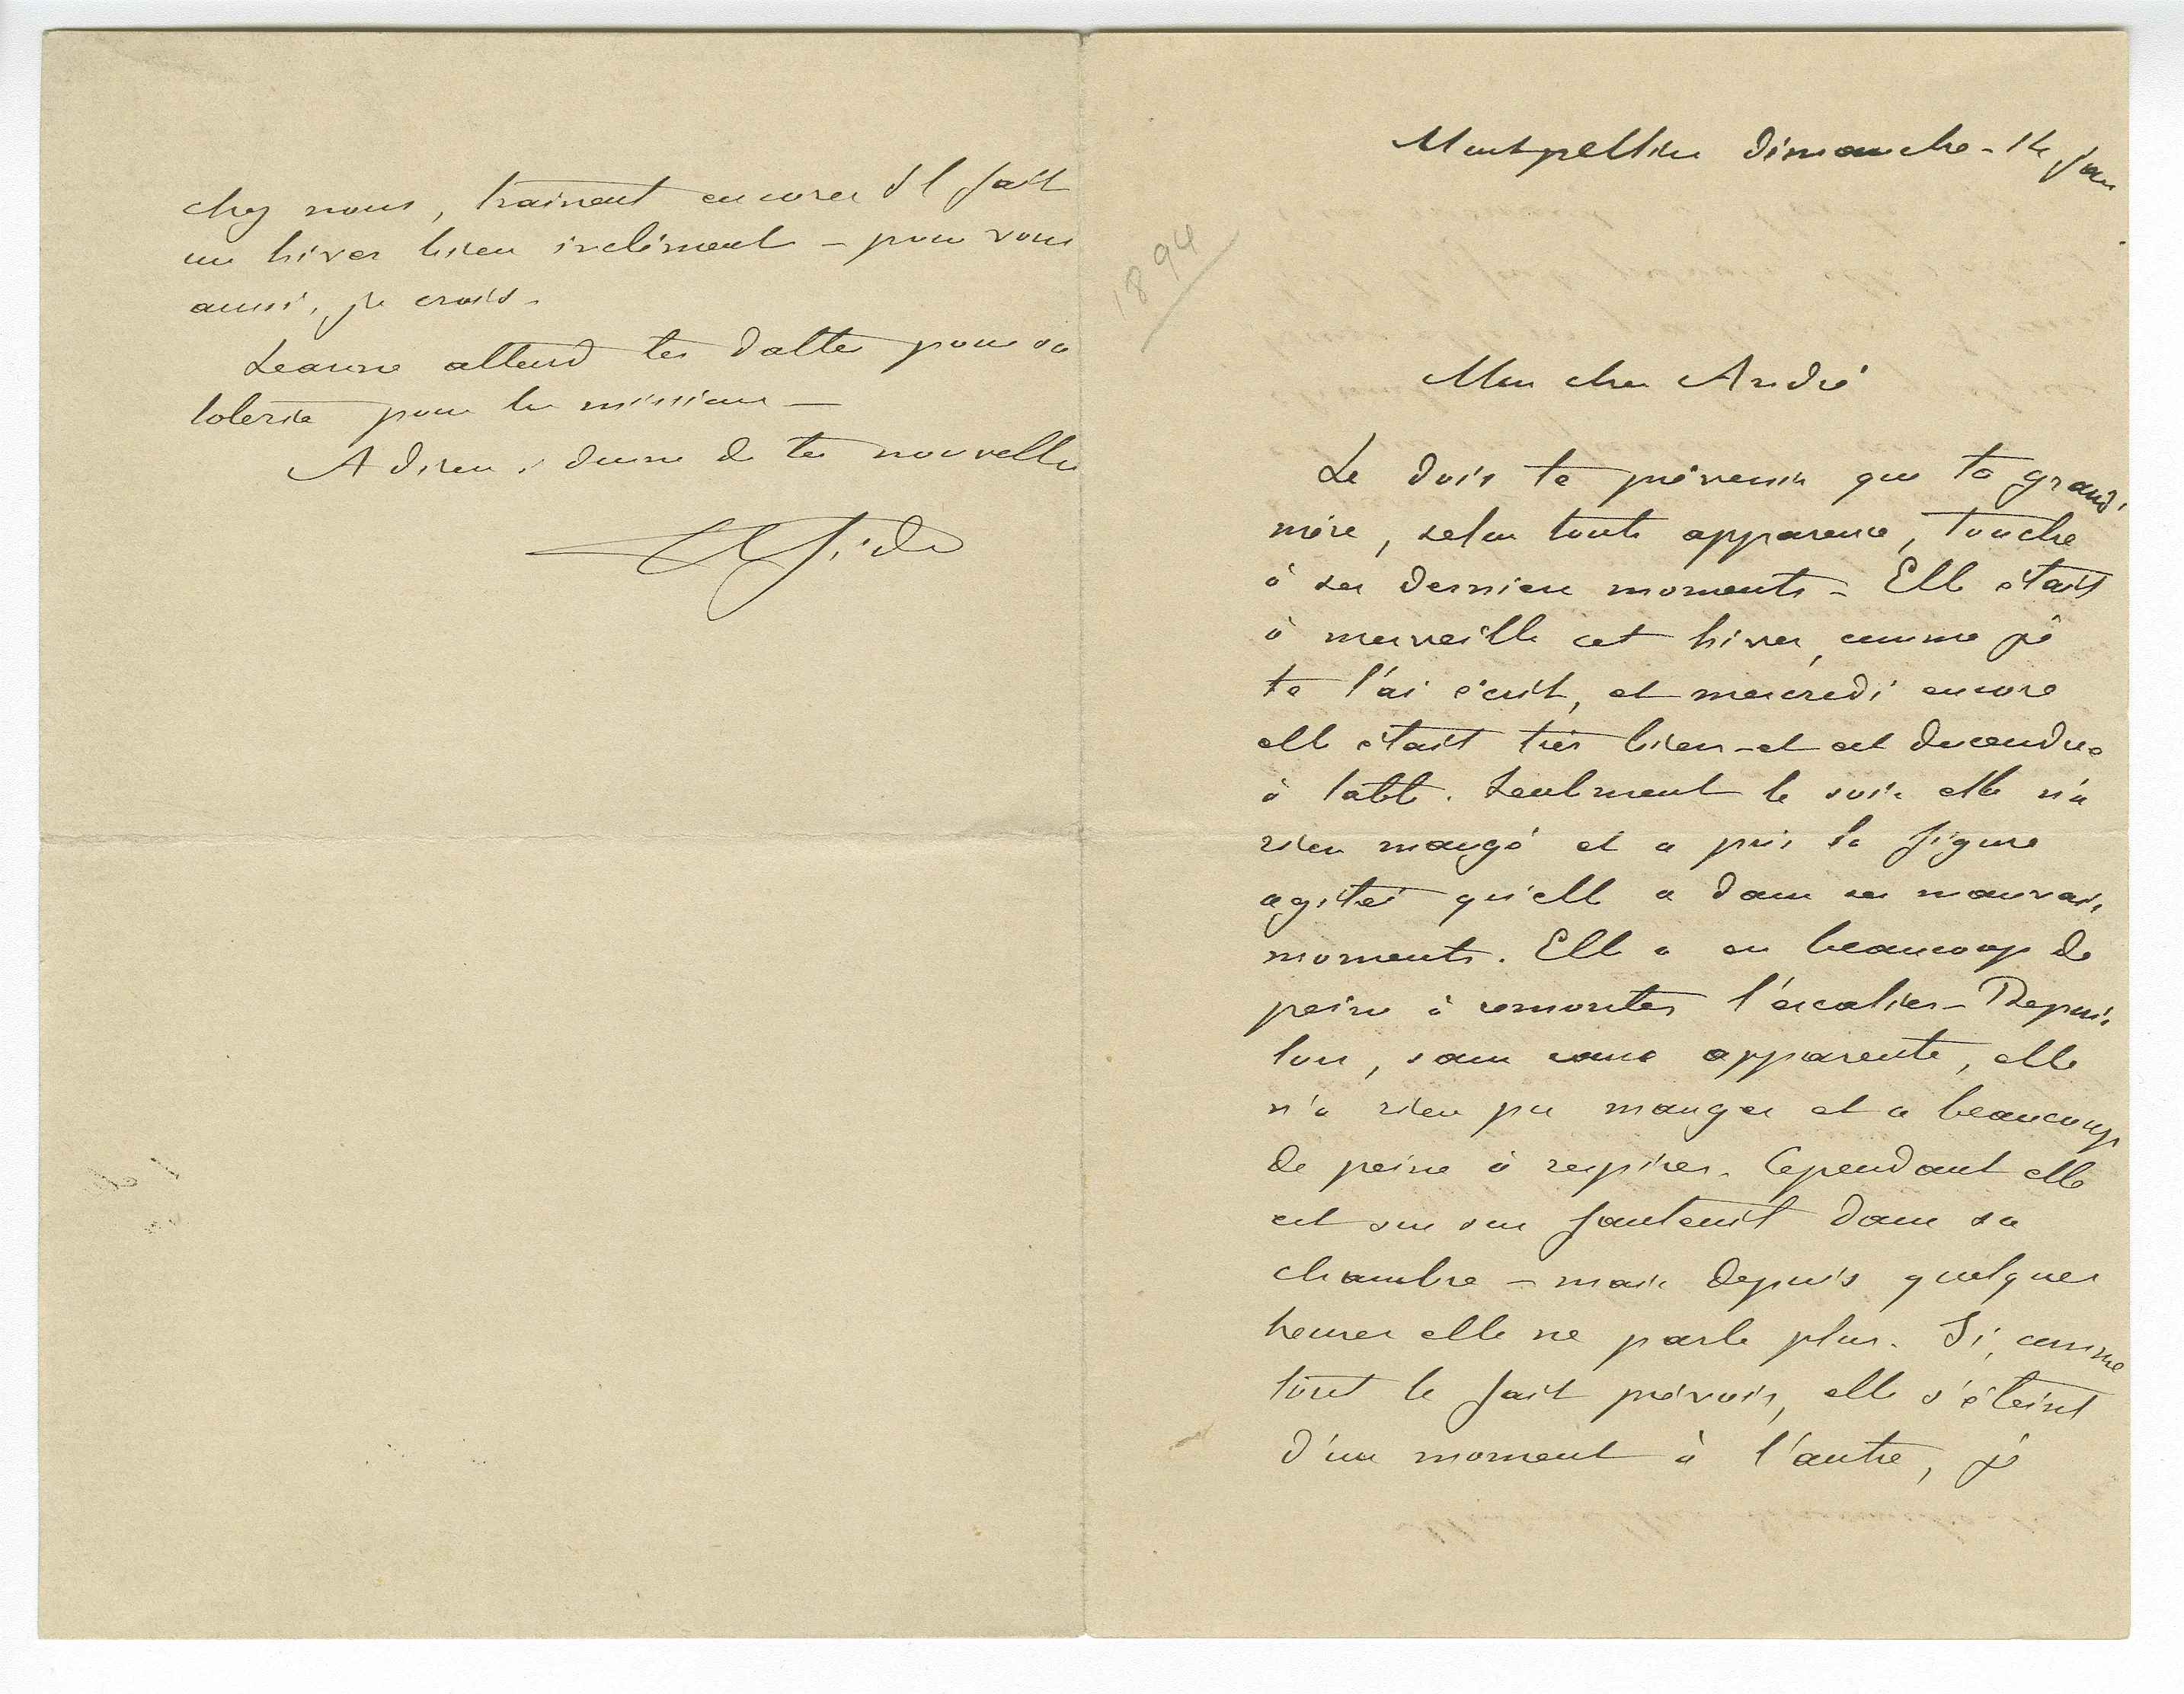 Montpellier Dimanche - 14 Jan
1894
Mon cher André
Je dois te prévenir que ta grand'
mère, selon toute apparence, touche
à ses derniers moments - Elle était
à merveille cet hiver, comme je
te l'ai écrit, et mercredi encore
elle était très bien - et est descendue
à table. Seulement le soir elle n'a
rien mangé et a pris la figure
agitée qu'elle a dans ses mauvais
moments. Elle a eu beaucoup de
peine à remonter l'escalier - Depuis
lors, sans cause apparente, elle
n'a rien pu manger et a beaucoup
de peine à respirer. Cependant elle
est sur son fauteuil dans sa
chambre - mais depuis quelques
heures elle ne parle plus. Si, comme
tout le fait prévoir, elle s'éteint
d'un moment à l'autre, je
chez nous, trainent encore. Il fait
un hiver bien inclément - pour vous
aussi, je crois.
Jeanne attend tes dattes pour sa
loterie pour les missions -
Adieu, donne de tes nouvelles
Ch Gide